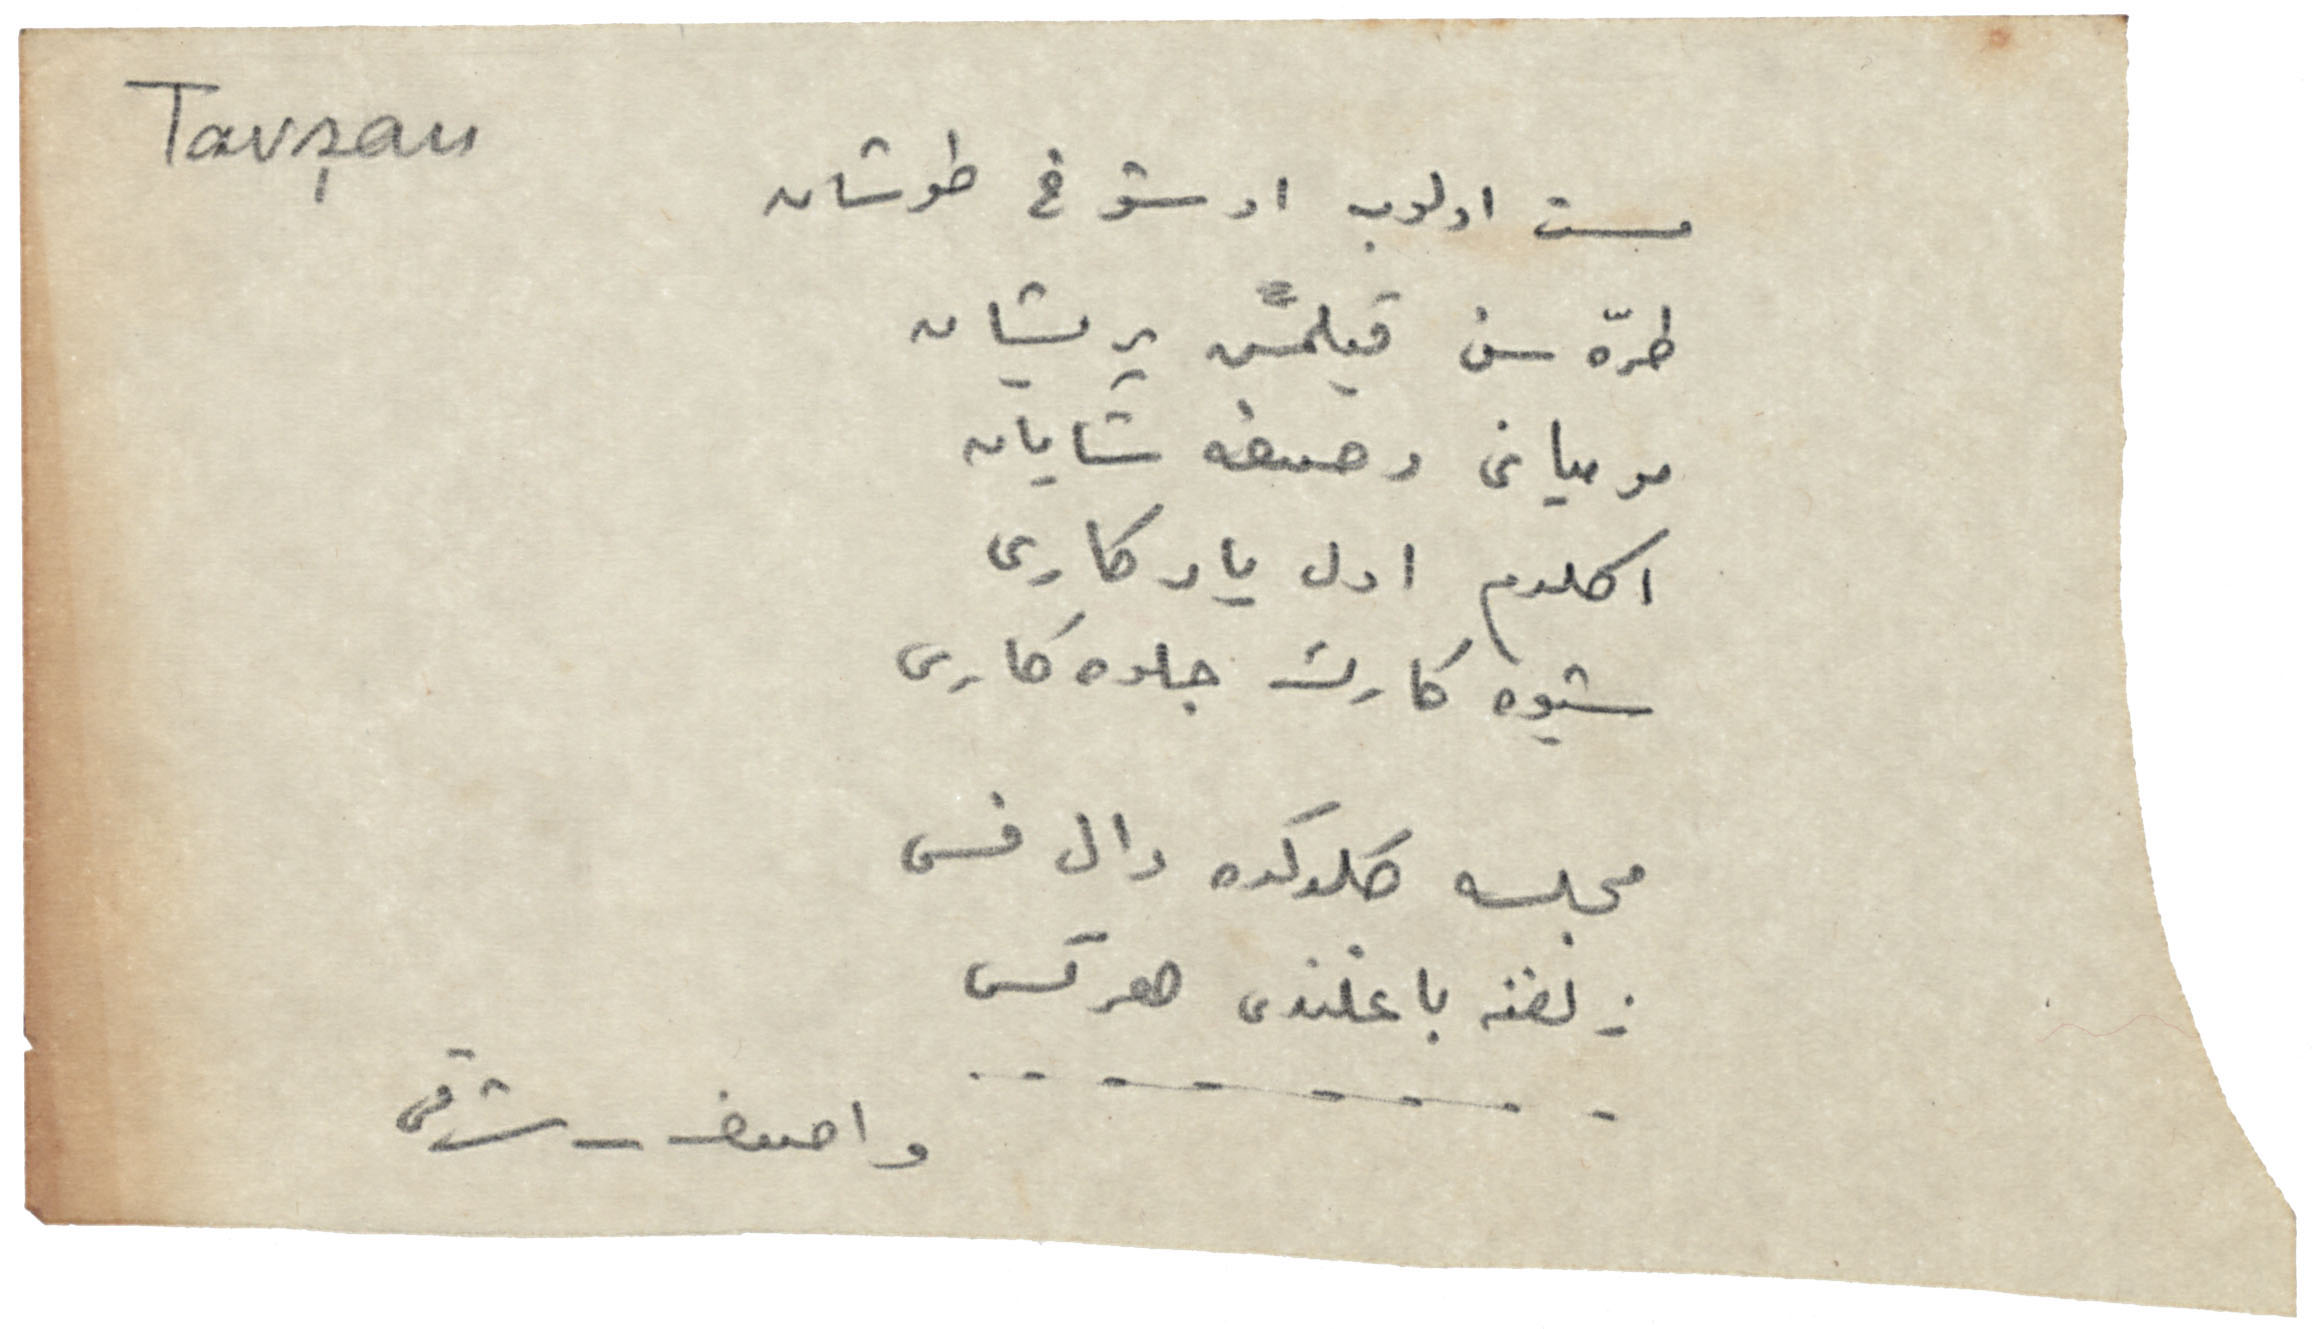 Tavşan
مست اولوب او شوخ طوشان
طرّه سن قیلمش پریشان
مو میانی وصفه شایان
اکلدم اول یادکاری
شیوه کارک جلوه کاری
مجلسه کلدکده دال فس
زلفنه باغلندی هرکس
واصف ــ شرقی